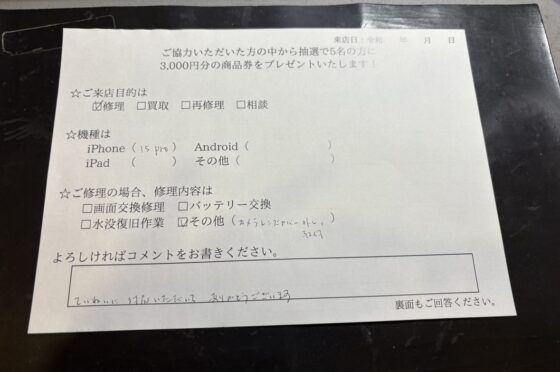 来店日：令和　年　月　日
ご協力いただいた方の中から抽選で5名の方に
3,000円分の商品券をプレゼントいたします！
☆ご来店目的は
☑修理　□買取　□再修理　□相談
☆機種は
iPhone（15 pro）　Android（　　　）
iPad　（　　　）　その他（　　　）
☆ご修理の場合、修理内容は
□画面交換修理　□バッテリー交換
□水没復旧作業　☑その他（カメラレンズカバー外し、）
よろしければコメントをお書きください。
ていねいに対応いただいて ありがとうございます
裏面もご回答ください。